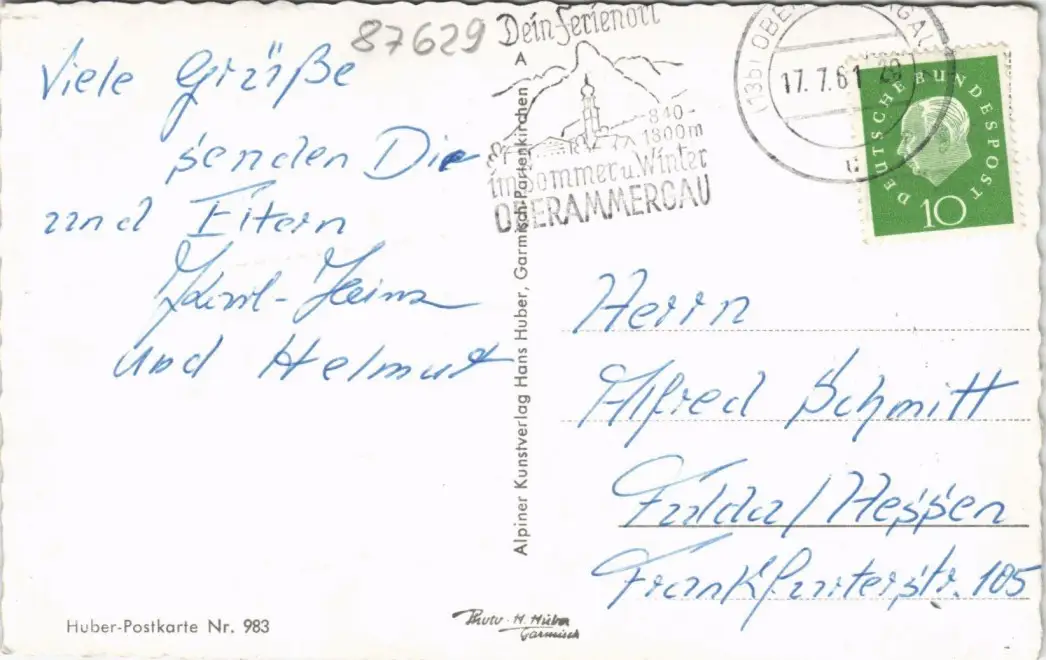 87629
Viele Grüße
senden Die
und Eltern
Karl-Heinz
und Helmut
Huber-Postkarte Nr. 983
Alpiner Kunstverlag Hans Huber, Garmisch-Partenkirchen A
Photo-H. Huber
Garmisch
Dein Ferienort
840-
1800m
im Sommer u. Winter
OBERAMMERGAU
(13b) OBERAMMERGAU
17.7.61
DEUTSCHE BUNDESPOST
10
Herrn
Alfred Schmitt
Fulda/Hessen
Frankfurterstr. 105